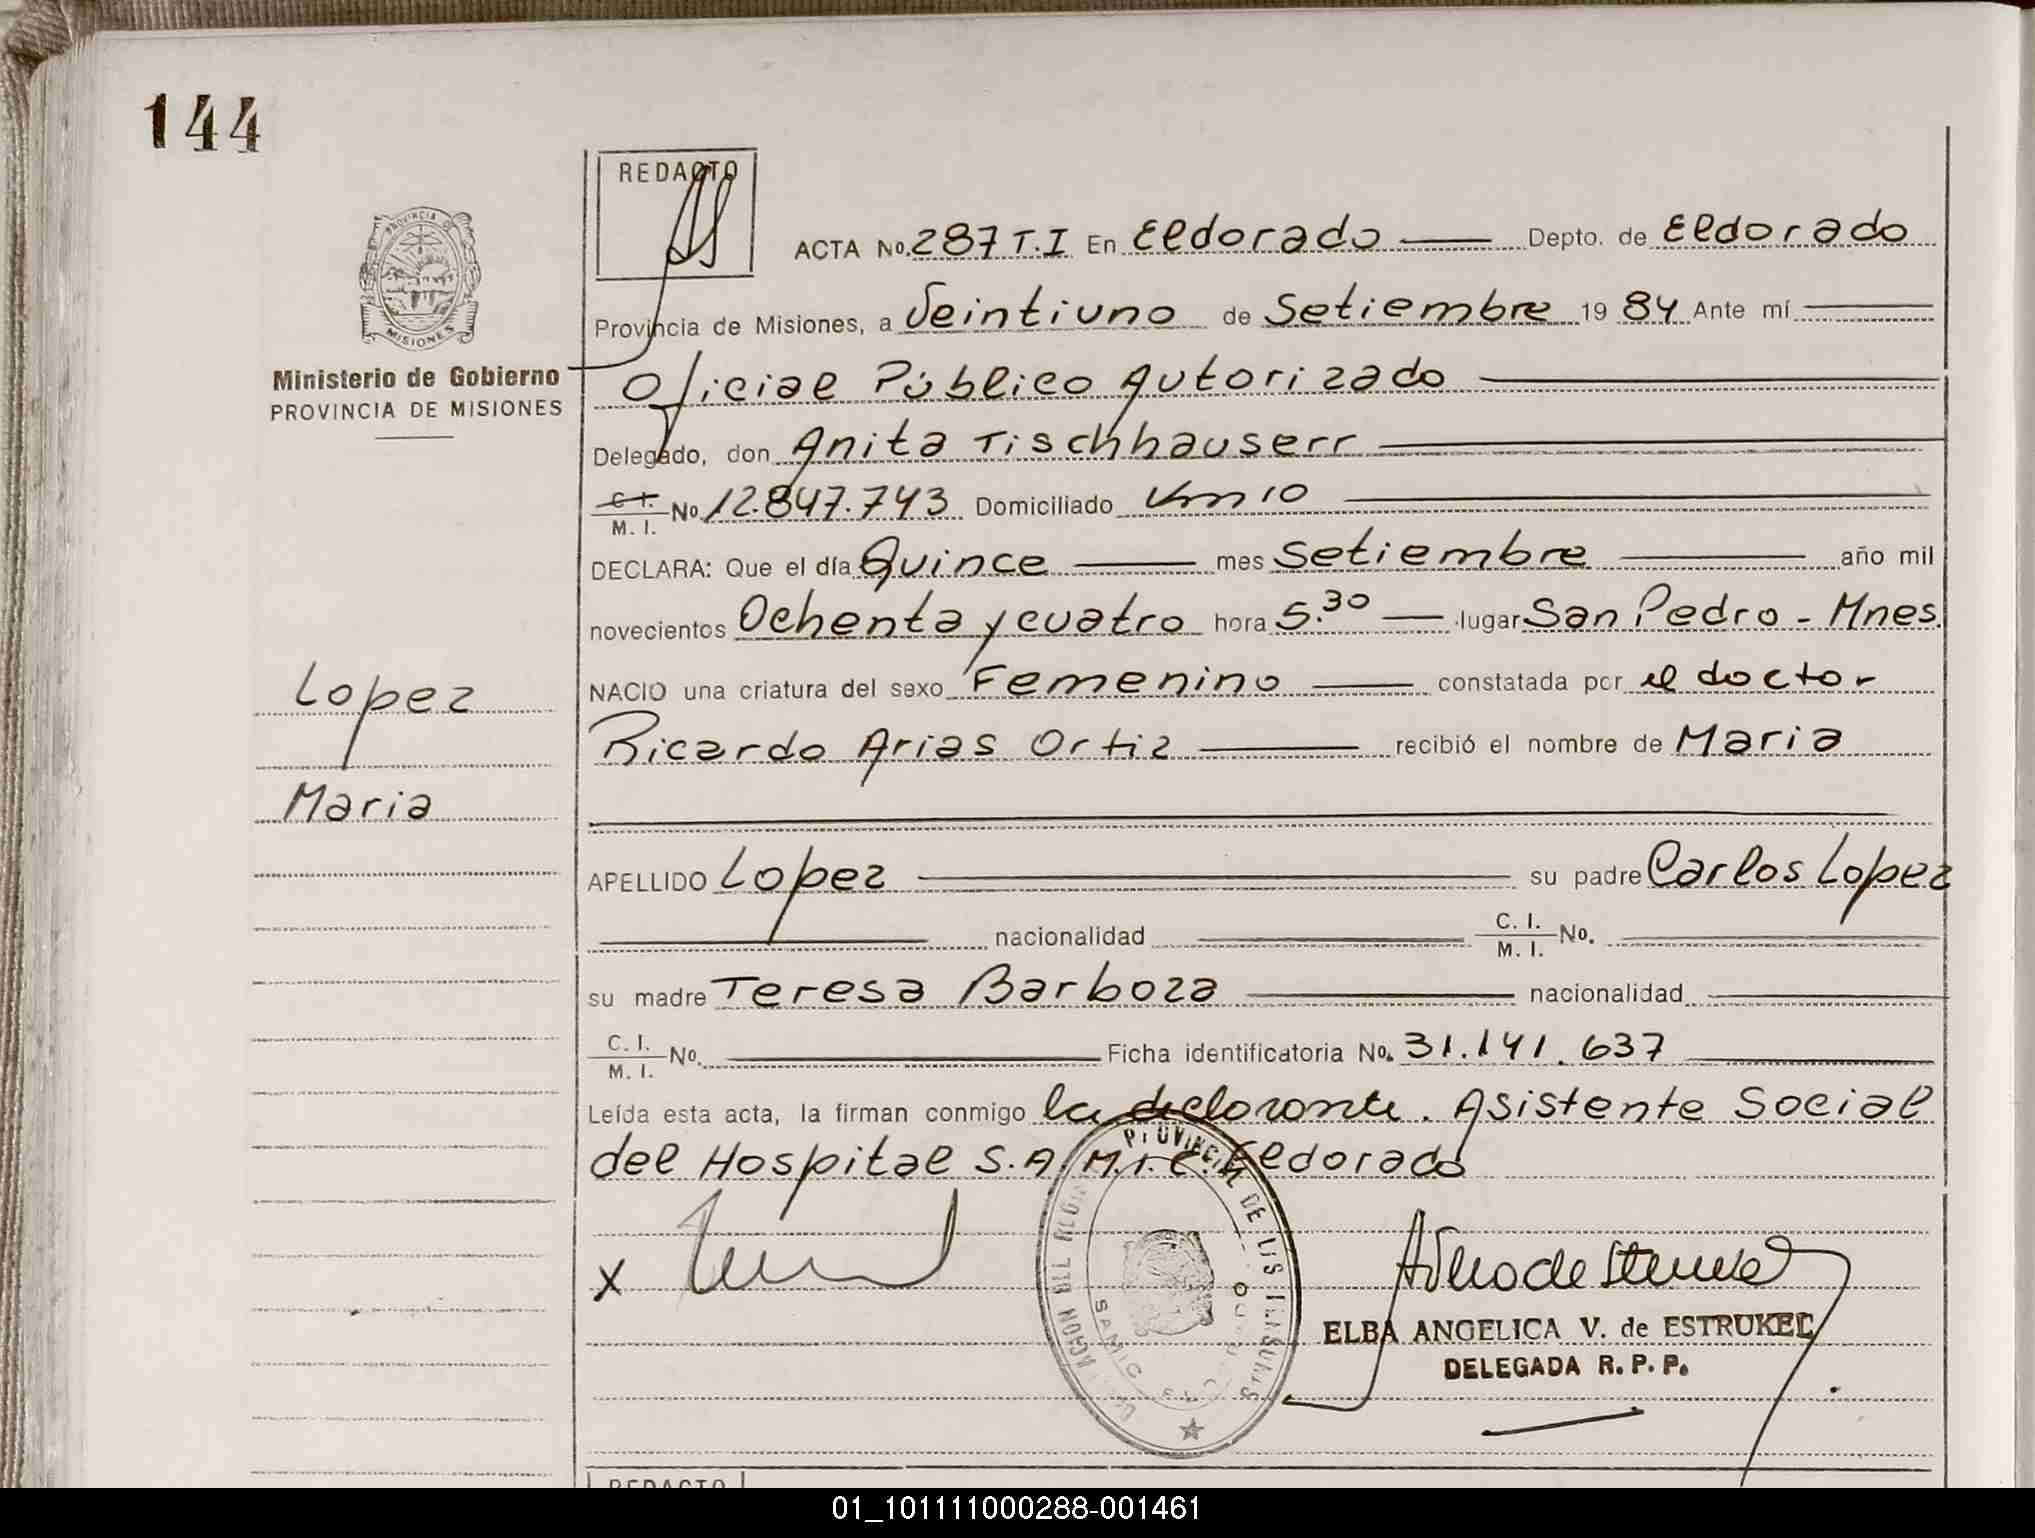 144
REDACTO
ACTA No. 287 T.I En Eldorado Depto. de Eldorado
Provincia de Misiones, a Veintiuno de Setiembre 19 84 Ante mí
PROVINCIA DE
MISIONES
Ministerio de Gobierno
PROVINCIA DE MISIONES
Oficial Público Autorizado
Delegado, don Anita Tischhauserr
C. I.
M. I. No. 12.847.743 Domiciliado Km 10
DECLARA: Que el día Quince mes Setiembre año mil
novecientos Ochenta y cuatro hora 5.30 lugar San Pedro - Mnes.
Lopez
NACIO una criatura del sexo Femenino constatada por el doctor
Ricardo Arias Ortiz recibió el nombre de Maria
Maria
APELLIDO Lopez su padre Carlos Lopez
nacionalidad C. I. M. I. No.
su madre Teresa Barboza nacionalidad
C. I. M. I. No. Ficha identificatoria No. 31.141.637
Leída esta acta, la firman conmigo la declarante. Asistente Social
del Hospital S.A.M.I.C. Eldorado
PROVINCIAL DE LAS PERSONAS
SAMIC
X
ELBA ANGELICA V. de ESTRUKEL
DELEGADA R. P. P.
REDACTO
01_101111000288-001461